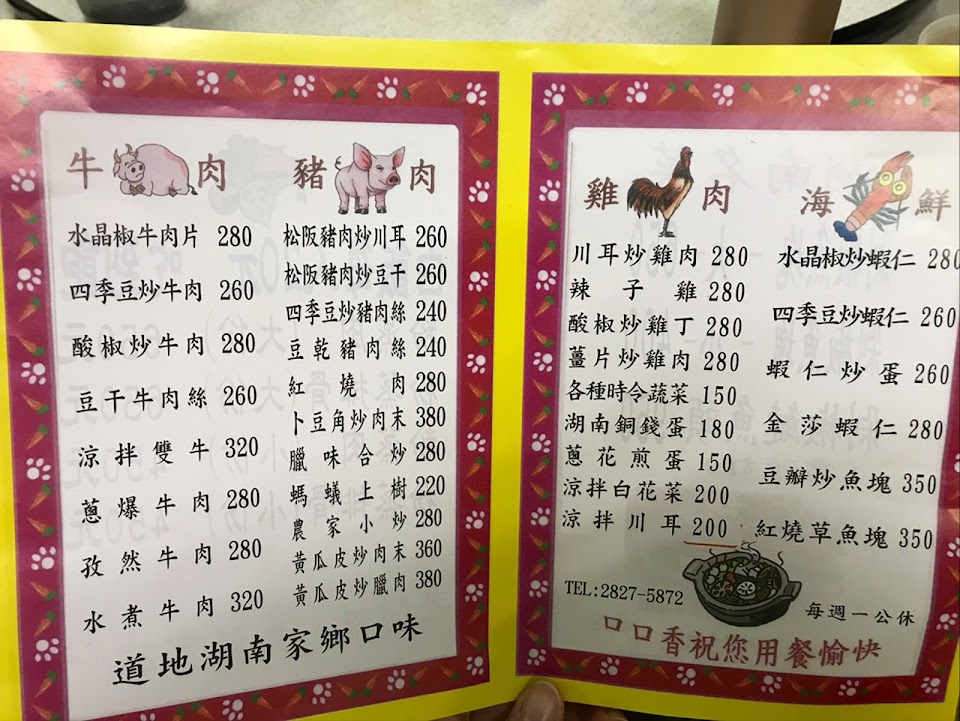 牛肉
水晶椒牛肉片 280
四季豆炒牛肉 260
酸椒炒牛肉 280
豆干牛肉絲 260
涼拌雙牛 320
蔥爆牛肉 280
孜然牛肉 280
水煮牛肉 320
豬肉
松阪豬肉炒川耳 260
松阪豬肉炒豆干 260
四季豆炒豬肉絲 240
豆乾豬肉絲 240
紅燒肉 280
卜豆角炒肉末 380
臘味合炒 280
螞蟻上樹 220
農家小炒 280
黃瓜皮炒肉末 360
黃瓜皮炒臘肉 380
道地湖南家鄉口味
雞肉
川耳炒雞肉 280
辣子雞 280
酸椒炒雞丁 280
薑片炒雞肉 280
各種時令蔬菜 150
湖南銅錢蛋 180
蔥花煎蛋 150
涼拌白花菜 200
涼拌川耳 200
海鮮
水晶椒炒蝦仁 280
四季豆炒蝦仁 260
蝦仁炒蛋 260
金莎蝦仁 280
豆瓣炒魚塊 350
紅燒草魚塊 350
TEL:2827-5872
每週一公休
口口香祝您用餐愉快